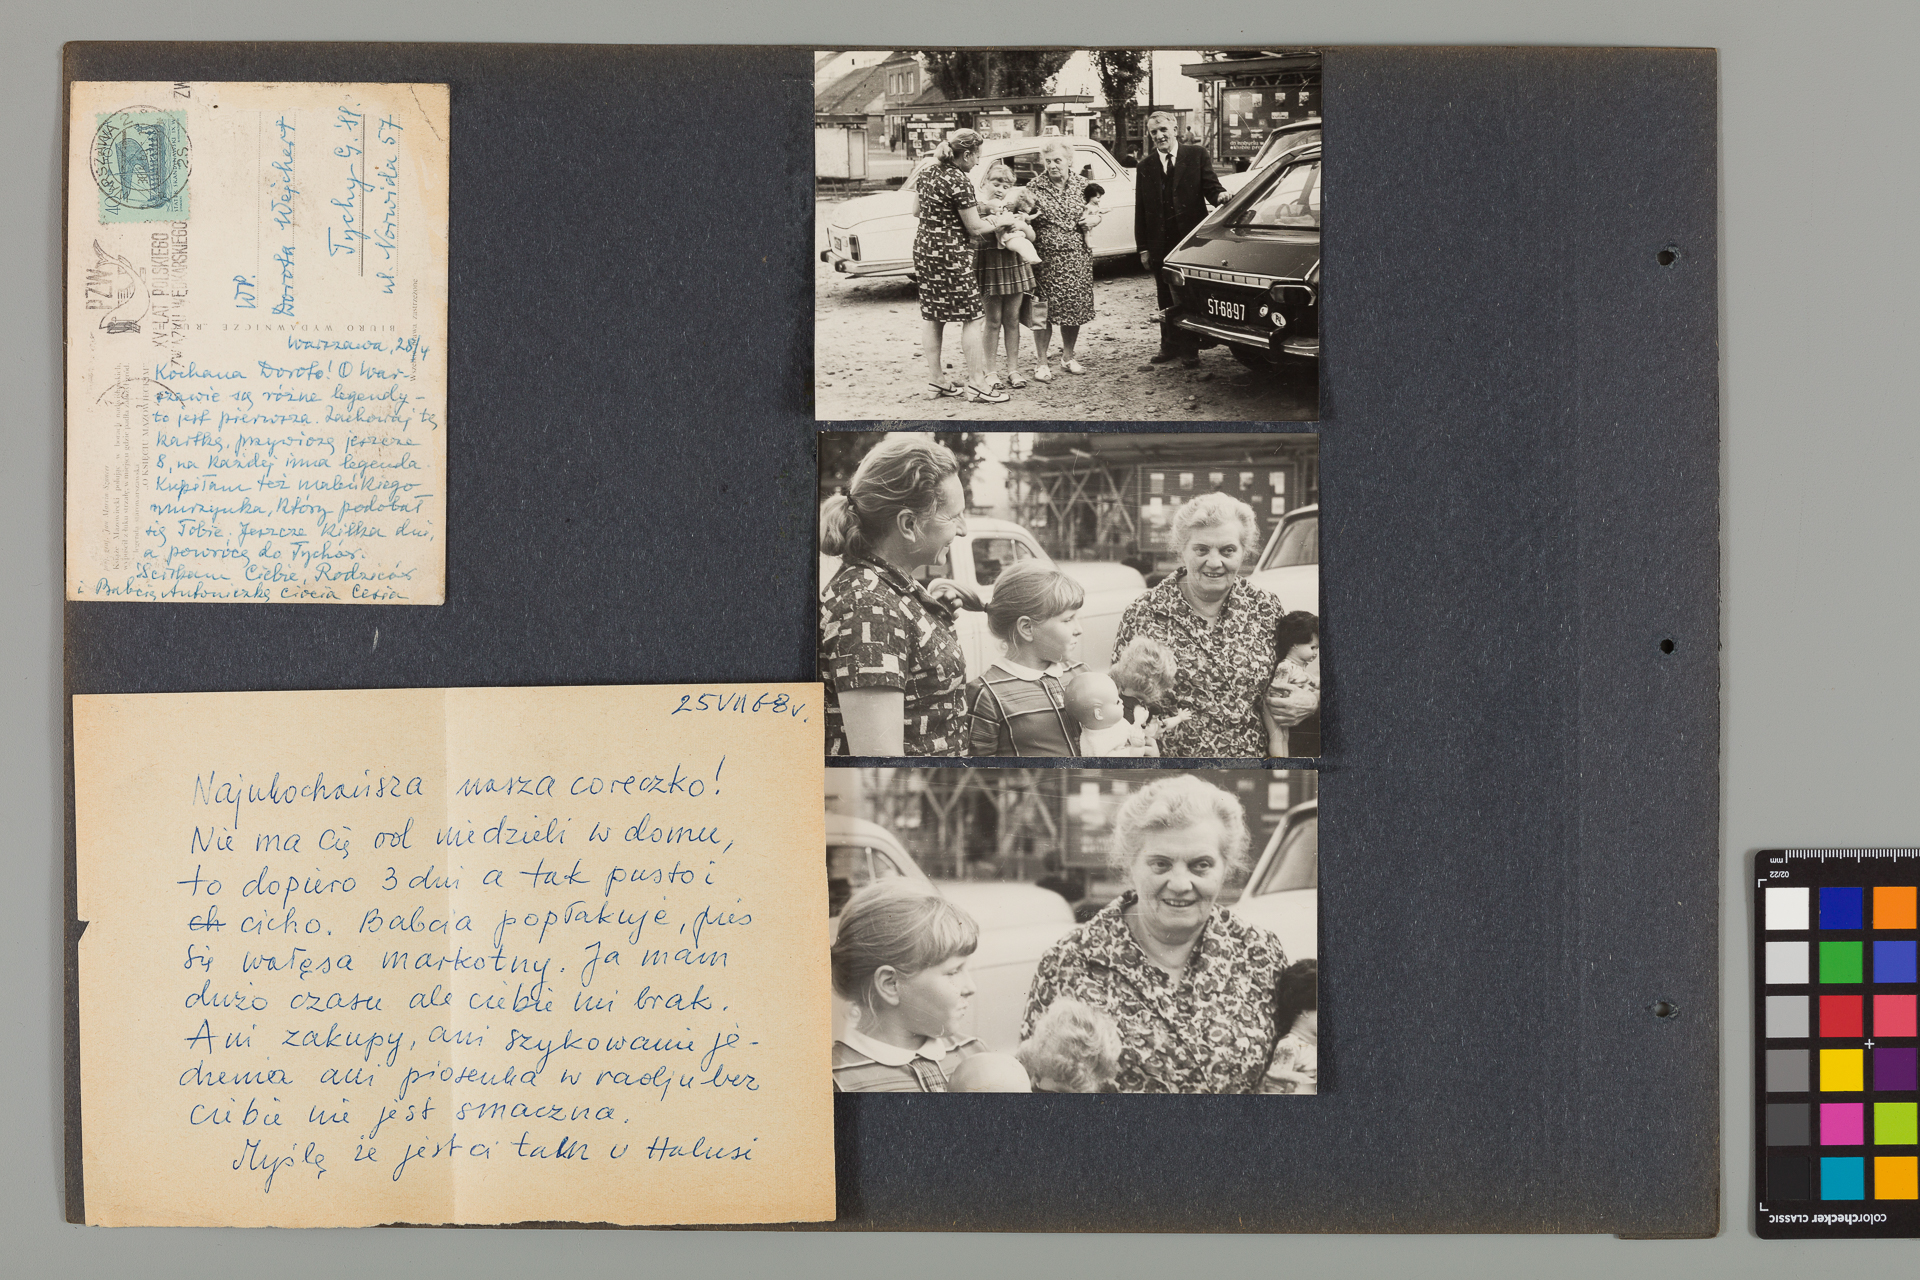 WARSZAWA 2
40
PZW
XV-LAT POLSKIEGO
ZWIĄZKU WĘDKARSKIEGO
WP.
Dorota Wejchert
Tychy G. Śl.
ul. Norwida 57
BIURO WYDAWNICZE „RUCH”
Warszawa, 28/V
Kochana Doroto! O War-
szawie są różne legendy –
to jest pierwsza. Zachowaj tę
kartkę, przywiozę jeszcze
8, na każdej inna legenda.
Kupiłam też maleńkiego
murzynka, który podobał
się Tobie. Jeszcze kilka dni,
a powrócę do Tychów.
Ściskam Ciebie, Rodziców
i Babcię Antoniczkę ciocia Cesia
25 VII 68 r.
Najukochańsza nasza coreczko!
Nie ma Cię od niedzieli w domu,
to dopiero 3 dni a tak pusto i
ch cicho. Babcia popłakuje, pies
się wałęsa markotny. Ja mam
dużo czasu ale ciebie mi brak.
Ani zakupy, ani szykowanie je-
dzenia ani piosenka w radju bez
ciebie nie jest smaczna.
Myślę że jest ci tam u Halusi
ST·6897
mm
02/22
colorchecker CLASSIC